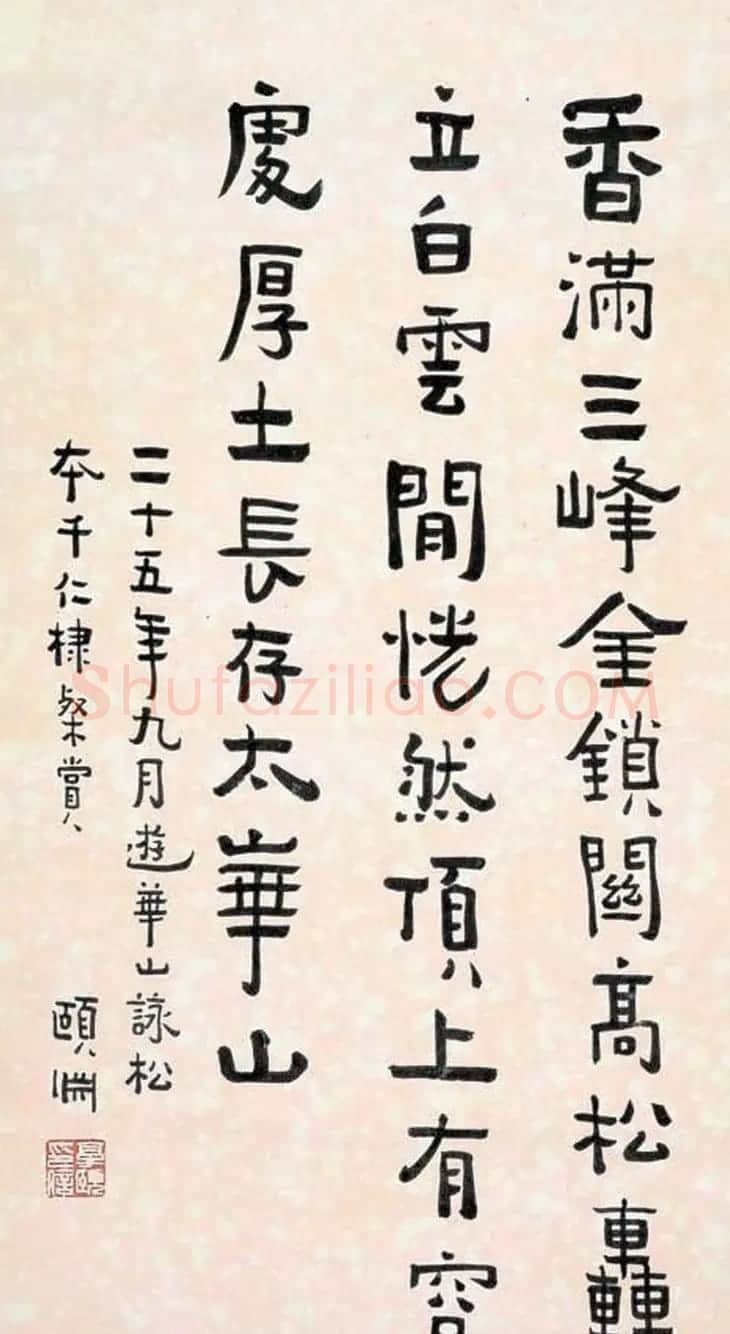 香滿三峰金鎖關高松轟
立白雲閒恍然頂上有容
處厚土長存太華山
二十五年九月遊華山詠松
本千仁棣粲賞 頤淵
Shufaziliao.COM